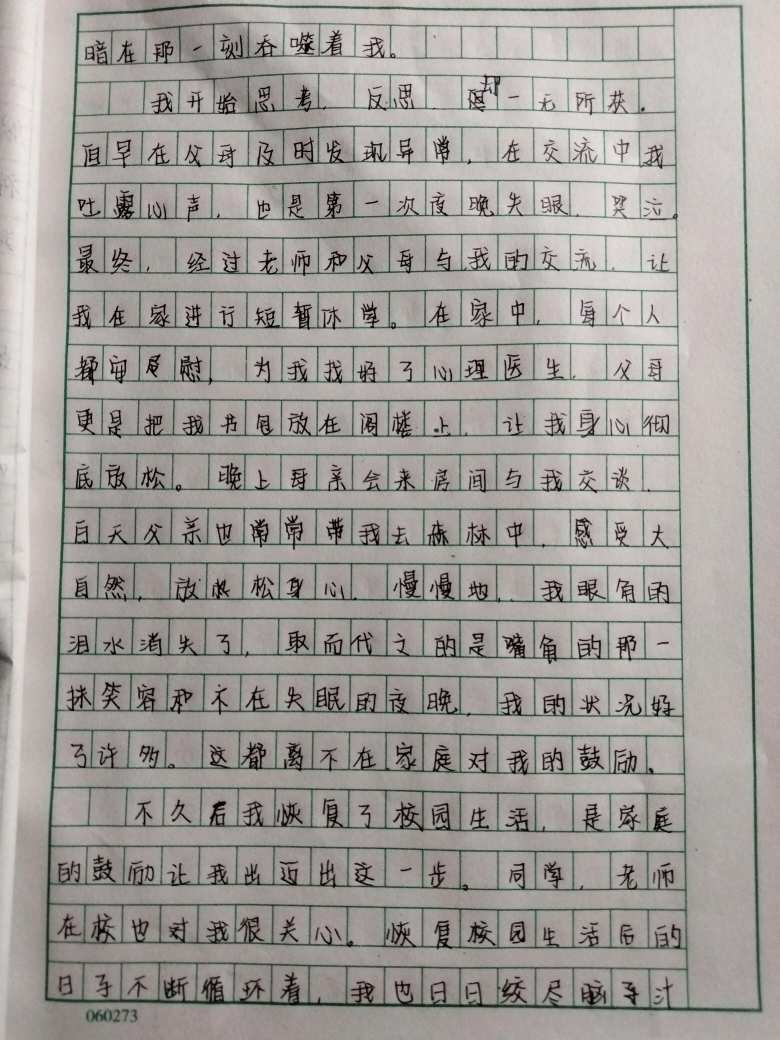 暗在那一刻吞噬着我。
我开始思考，反思，却一无所获。
早在父母及时发现异常，在交流中我
吐露心声，也是第一次夜晚失眼，哭泣。
最终，经过老师和父母与我的交流，让
我在家进行短暂休学。在家中，每个人
都安慰，为我找好了心理医生，父母
更是把我书包放在阁楼上，让我身心彻
底放松。晚上母亲会来房间与我交谈，
白天父亲也常常带我去森林中，感受大
自然，放松身心，慢慢地，我眼角的
泪水消失了，取而代之的是嘴角的那一
抹笑容和不在失眠的夜晚，我的状况好
了许多。这都离不在家庭对我的鼓励。
不久后我恢复了校园生活，是家庭
的鼓励让我出迈出这一步。同学，老师
在校也对我很关心。恢复校园生活后的
日子不断循环着，我也日日绞尽脑子汁
060273